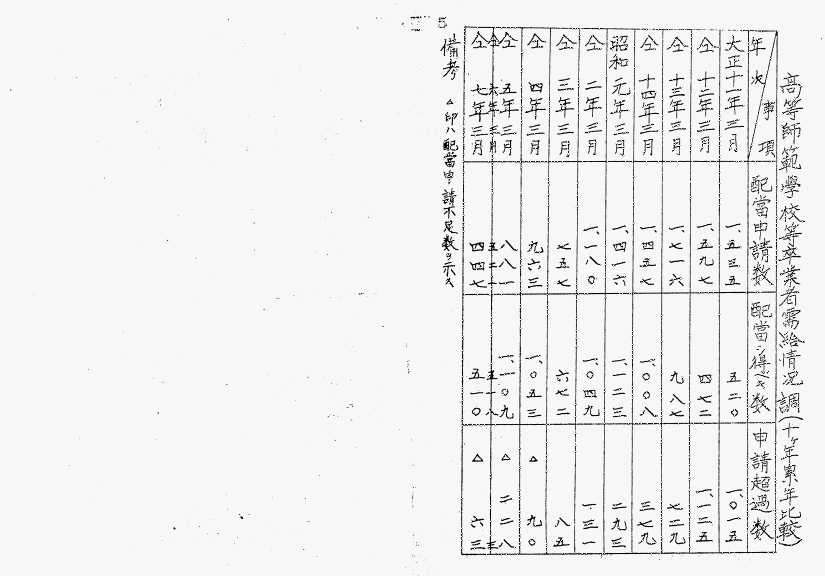 5
高等師範學校等卒業者需給情況調(十ヶ年累年比較)
年次 事項 配當申請数 配當シ得ベキ数 申請超過数
大正十一年三月 一、五三五 五二〇 一、〇一五
仝 十二年三月 一、五九七 四七二 一、一二五
仝 十三年三月 一、七一六 九八七 七二九
仝 十四年三月 一、四五七 一、〇〇八 三七九
昭和元年三月 一、四一六 一、一二三 二九三
仝 二年三月 一、一八〇 一、〇四九 一三一
仝 三年三月 七五七 六七二 八五
仝 四年三月 九六三 一、〇五三 △九〇
仝 五年三月 八八一 一、一〇九 △二二八
仝 六年三月 五二一 五一八 三
仝 七年三月 四四七 五一〇 △六三
備考 △印ハ配當申請不足数ヲ示ス